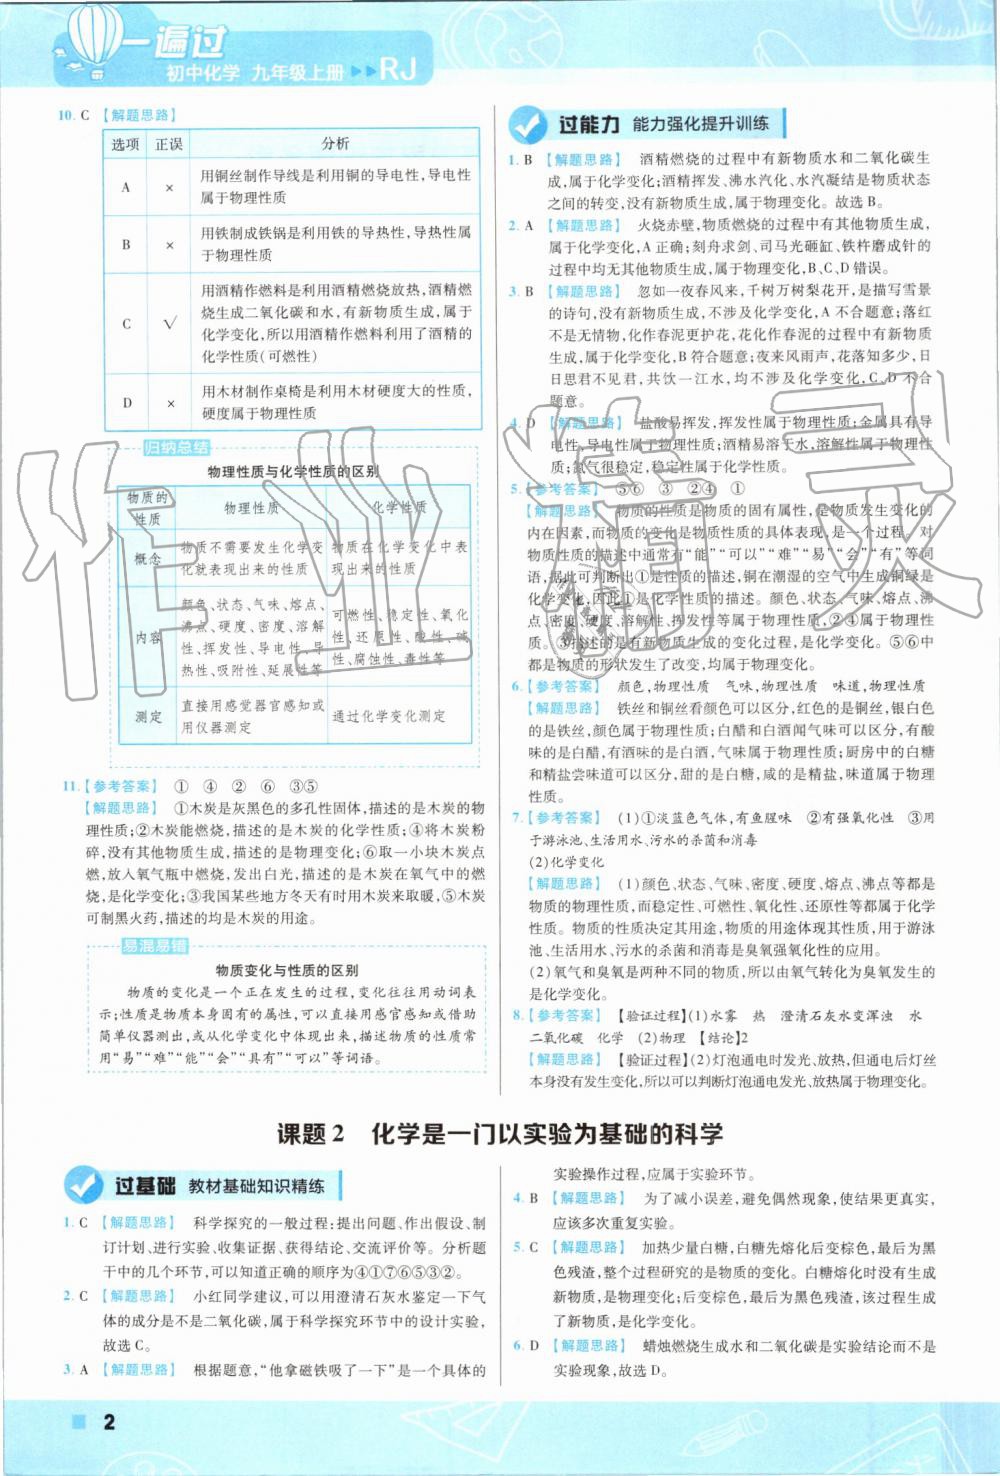 一遍过
初中化学 九年级上册 ▶▶RJ
10. C 【解题思路】
选项 正误 分析
A × 用铜丝制作导线是利用铜的导电性,导电性
属于物理性质
B × 用铁制成铁锅是利用铁的导热性,导热性属
于物理性质
C √ 用酒精作燃料是利用酒精燃烧放热,酒精燃
烧生成二氧化碳和水,有新物质生成,属于
化学变化,所以用酒精作燃料利用了酒精的
化学性质(可燃性)
D × 用木材制作桌椅是利用木材硬度大的性质,
硬度属于物理性质
归纳总结
物理性质与化学性质的区别
物质的
性质 物理性质 化学性质
概念 物质不需要发生化学变
化就表现出来的性质 物质在化学变化中表
现出来的性质
内容 颜色、状态、气味、熔点、
沸点、硬度、密度、溶解
性、挥发性、导电性、导
热性、吸附性、延展性等 可燃性、稳定性、氧化
性、还原性、酸性、碱
性、腐蚀性、毒性等
测定 直接用感觉器官感知或
用仪器测定 通过化学变化测定
11.【参考答案】 ① ④ ② ⑥ ③⑤
【解题思路】 ①木炭是灰黑色的多孔性固体,描述的是木炭的物
理性质;②木炭能燃烧,描述的是木炭的化学性质;④将木炭粉
碎,没有其他物质生成,描述的是物理变化;⑥取一小块木炭点
燃,放入氧气瓶中燃烧,发出白光,描述的是木炭在氧气中的燃
烧,是化学变化;③我国某些地方冬天有时用木炭来取暖,⑤木炭
可制黑火药,描述的均是木炭的用途。
易混易错
物质变化与性质的区别
物质的变化是一个正在发生的过程,变化往往用动词表
示;性质是物质本身固有的属性,可以直接用感官感知或借助
简单仪器测出,或从化学变化中体现出来,描述物质的性质常
用“易”“难”“能”“会”“具有”“可以”等词语。
过能力 能力强化提升训练
1. B 【解题思路】 酒精燃烧的过程中有新物质水和二氧化碳生
成,属于化学变化;酒精挥发、沸水汽化、水汽凝结是物质状态
之间的转变,没有新物质生成,属于物理变化。故选 B。
2. A 【解题思路】 火烧赤壁,物质燃烧的过程中有其他物质生成,
属于化学变化,A 正确;刻舟求剑、司马光砸缸、铁杵磨成针的
过程中均无其他物质生成,属于物理变化,B、C、D 错误。
3. B 【解题思路】 忽如一夜春风来,千树万树梨花开,是描写雪景
的诗句,没有新物质生成,不涉及化学变化,A 不合题意;落红
不是无情物,化作春泥更护花,花化作春泥的过程中有新物质
生成,属于化学变化,B 符合题意;夜来风雨声,花落知多少,日
日思君不见君,共饮一江水,均不涉及化学变化,C、D 不合
题意。
4. D 【解题思路】 盐酸易挥发,挥发性属于物理性质;金属具有导
电性,导电性属于物理性质;酒精易溶于水,溶解性属于物理性
质;氮气很稳定,稳定性属于化学性质。
5.【参考答案】 ⑤⑥ ③ ②④ ①
【解题思路】 物质的性质是物质的固有属性,是物质发生变化的
内在因素,而物质的变化是物质性质的具体表现,是一个过程。对
物质性质的描述中通常有“能”“可以”“难”“易”“会”“有”等词
语,据此可判断出①是性质的描述,铜在潮湿的空气中生成铜绿是
化学变化,因此①是化学性质的描述。颜色、状态、气味、熔点、沸
点、密度、硬度、溶解性、挥发性等属于物理性质,②④属于物理性
质。③描述的是有新物质生成的变化过程,是化学变化。⑤⑥中
都是物质的形状发生了改变,均属于物理变化。
6.【参考答案】 颜色,物理性质 气味,物理性质 味道,物理性质
【解题思路】 铁丝和铜丝看颜色可以区分,红色的是铜丝,银白色
的是铁丝,颜色属于物理性质;白醋和白酒闻气味可以区分,有酸
味的是白醋,有酒味的是白酒,气味属于物理性质;厨房中的白糖
和精盐尝味道可以区分,甜的是白糖,咸的是精盐,味道属于物理
性质。
7.【参考答案】 (1)①淡蓝色气体,有鱼腥味 ②有强氧化性 ③用
于游泳池、生活用水、污水的杀菌和消毒
(2)化学变化
【解题思路】 (1)颜色、状态、气味、密度、硬度、熔点、沸点等都是
物质的物理性质,而稳定性、可燃性、氧化性、还原性等都属于化学
性质。物质的性质决定其用途,物质的用途体现其性质,用于游泳
池、生活用水、污水的杀菌和消毒是臭氧强氧化性的应用。
(2)氧气和臭氧是两种不同的物质,所以由氧气转化为臭氧发生的
是化学变化。
8.【参考答案】 【验证过程】(1)水雾 热 澄清石灰水变浑浊 水
二氧化碳 化学 (2)物理 【结论】2
【解题思路】 【验证过程】(2)灯泡通电时发光、放热,但通电后灯丝
本身没有发生变化,所以可以判断灯泡通电发光、放热属于物理变化。
课题 2 化学是一门以实验为基础的科学
过基础 教材基础知识精练
1. C 【解题思路】 科学探究的一般过程:提出问题、作出假设、制
订计划、进行实验、收集证据、获得结论、交流评价等。分析题
干中的几个环节,可以知道正确的顺序为④①⑦⑥⑤③②。
2. C 【解题思路】 小红同学建议,可以用澄清石灰水鉴定一下气
体的成分是不是二氧化碳,属于科学探究环节中的设计实验,
故选 C。
3. A 【解题思路】 根据题意,“他拿磁铁吸了一下”是一个具体的
实验操作过程,应属于实验环节。
4. B 【解题思路】 为了减小误差,避免偶然现象,使结果更真实,
应该多次重复实验。
5. C 【解题思路】 加热少量白糖,白糖先熔化后变棕色,最后为黑
色残渣,整个过程研究的是物质的变化。白糖熔化时没有生成
新物质,是物理变化;后变棕色,最后为黑色残渣,该过程生成
了新物质,是化学变化。
6. D 【解题思路】 蜡烛燃烧生成水和二氧化碳是实验结论而不是
实验现象,故选 D。
2
作业精灵